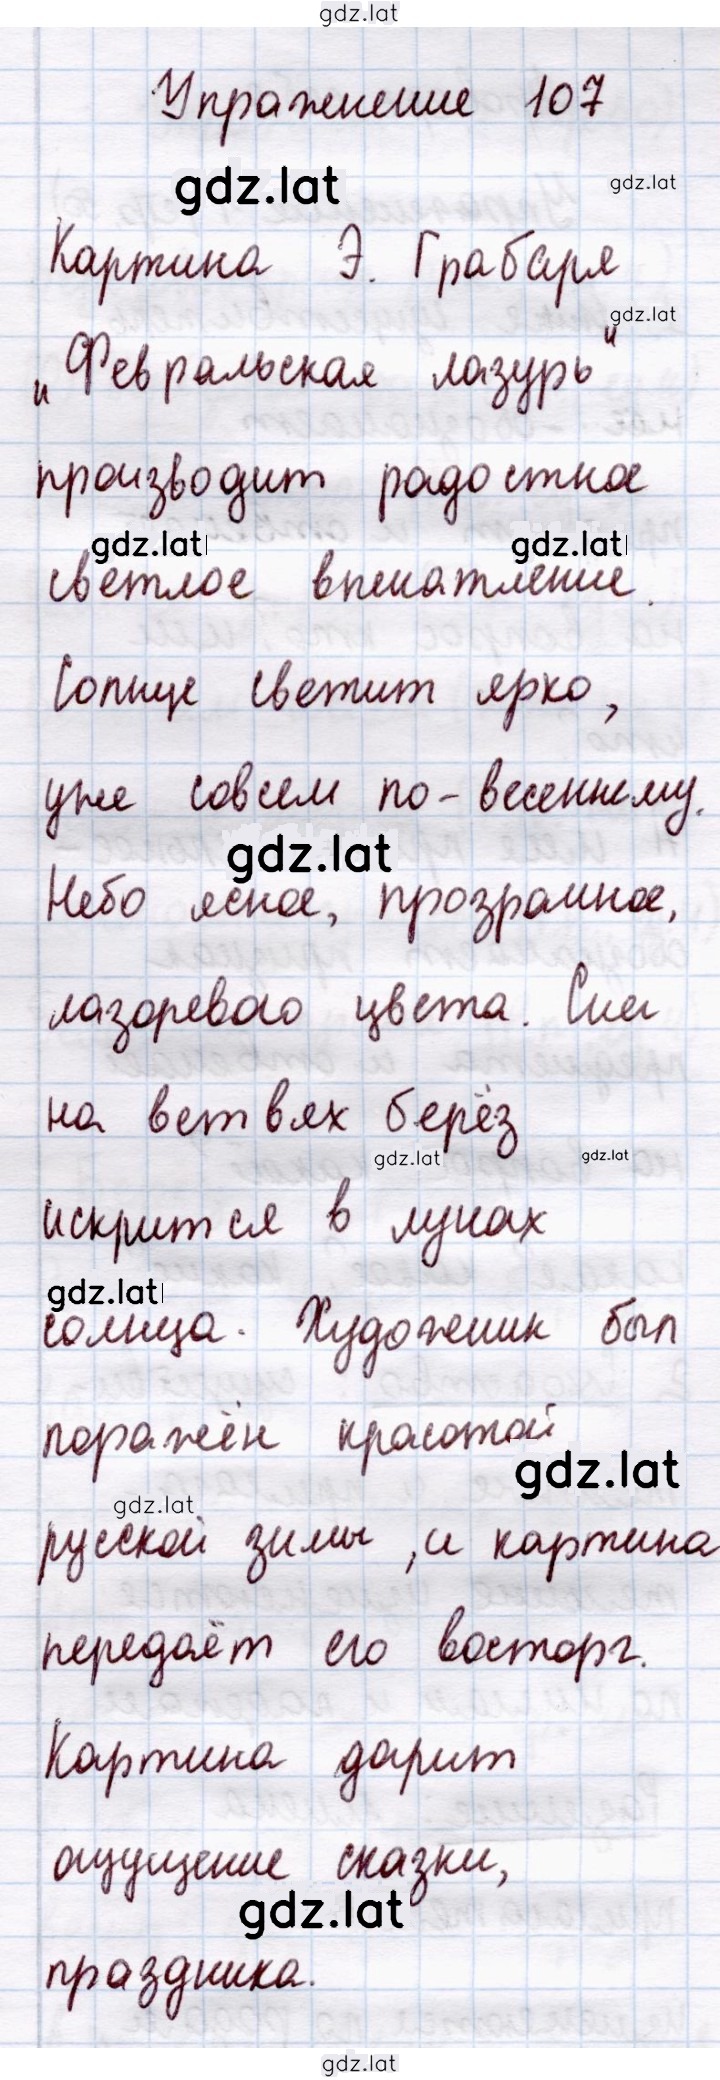 gdz.lat
Упражнение 107
gdz.lat gdz.lat
Картина Э. Грабаря
gdz.lat
„Февральская лазурь"
производит радостное
gdz.lat gdz.lat
светлое впечатление.
Солнце светит ярко,
уже совсем по-весеннему.
gdz.lat
Небо ясное, прозрачное,
лазоревого цвета. Снег
на ветвях берёз
gdz.lat gdz.lat
искрится в лучах
gdz.lat
солнца. Художник был
поражён красотой
gdz.lat
gdz.lat
русской зимы, и картина
передаёт его восторг.
Картина дарит
ощущение сказки,
gdz.lat
праздника.
gdz.lat